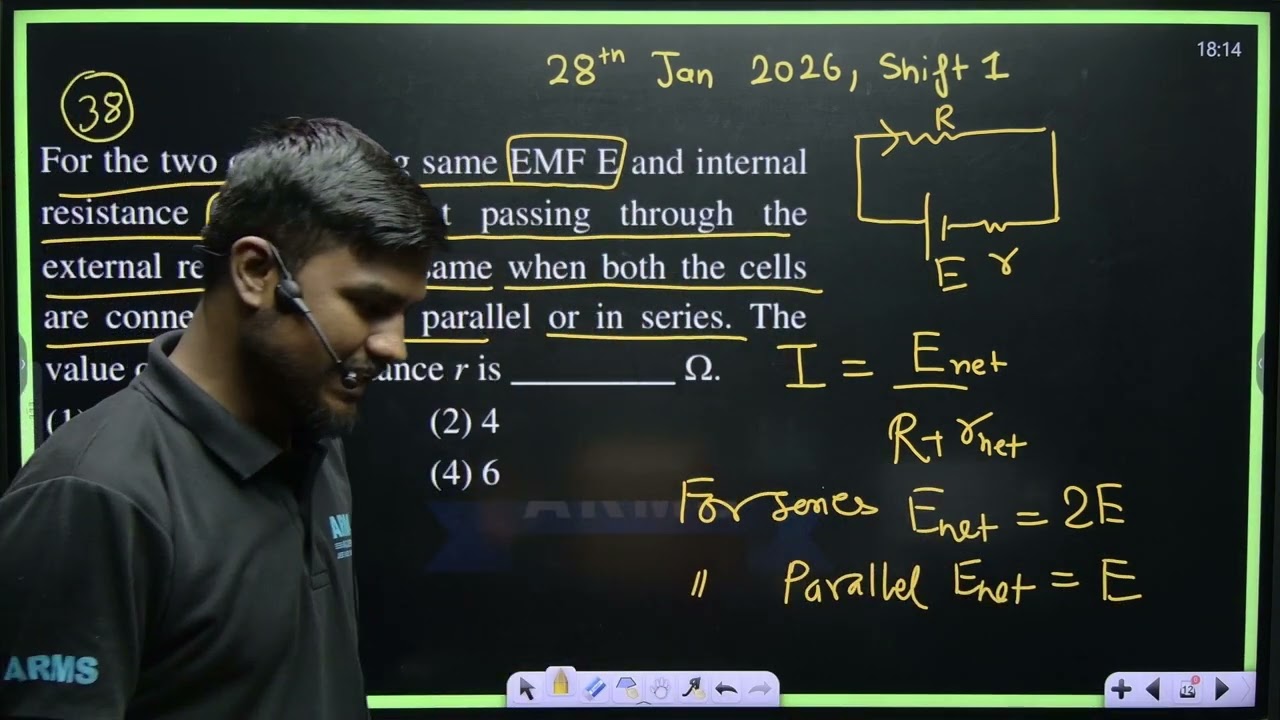 18:14
28th Jan 2026, Shift 1
38
For the two same EMF E and internal
resistance passing through the
external when both the cells
are parallel or in series. The
value is _________ Ω.
(2) 4
(4) 6
R
E r
I = Enet
R + rnet
For series Enet = 2E
〃 Parallel Enet = E
ARMS
ARMS
12